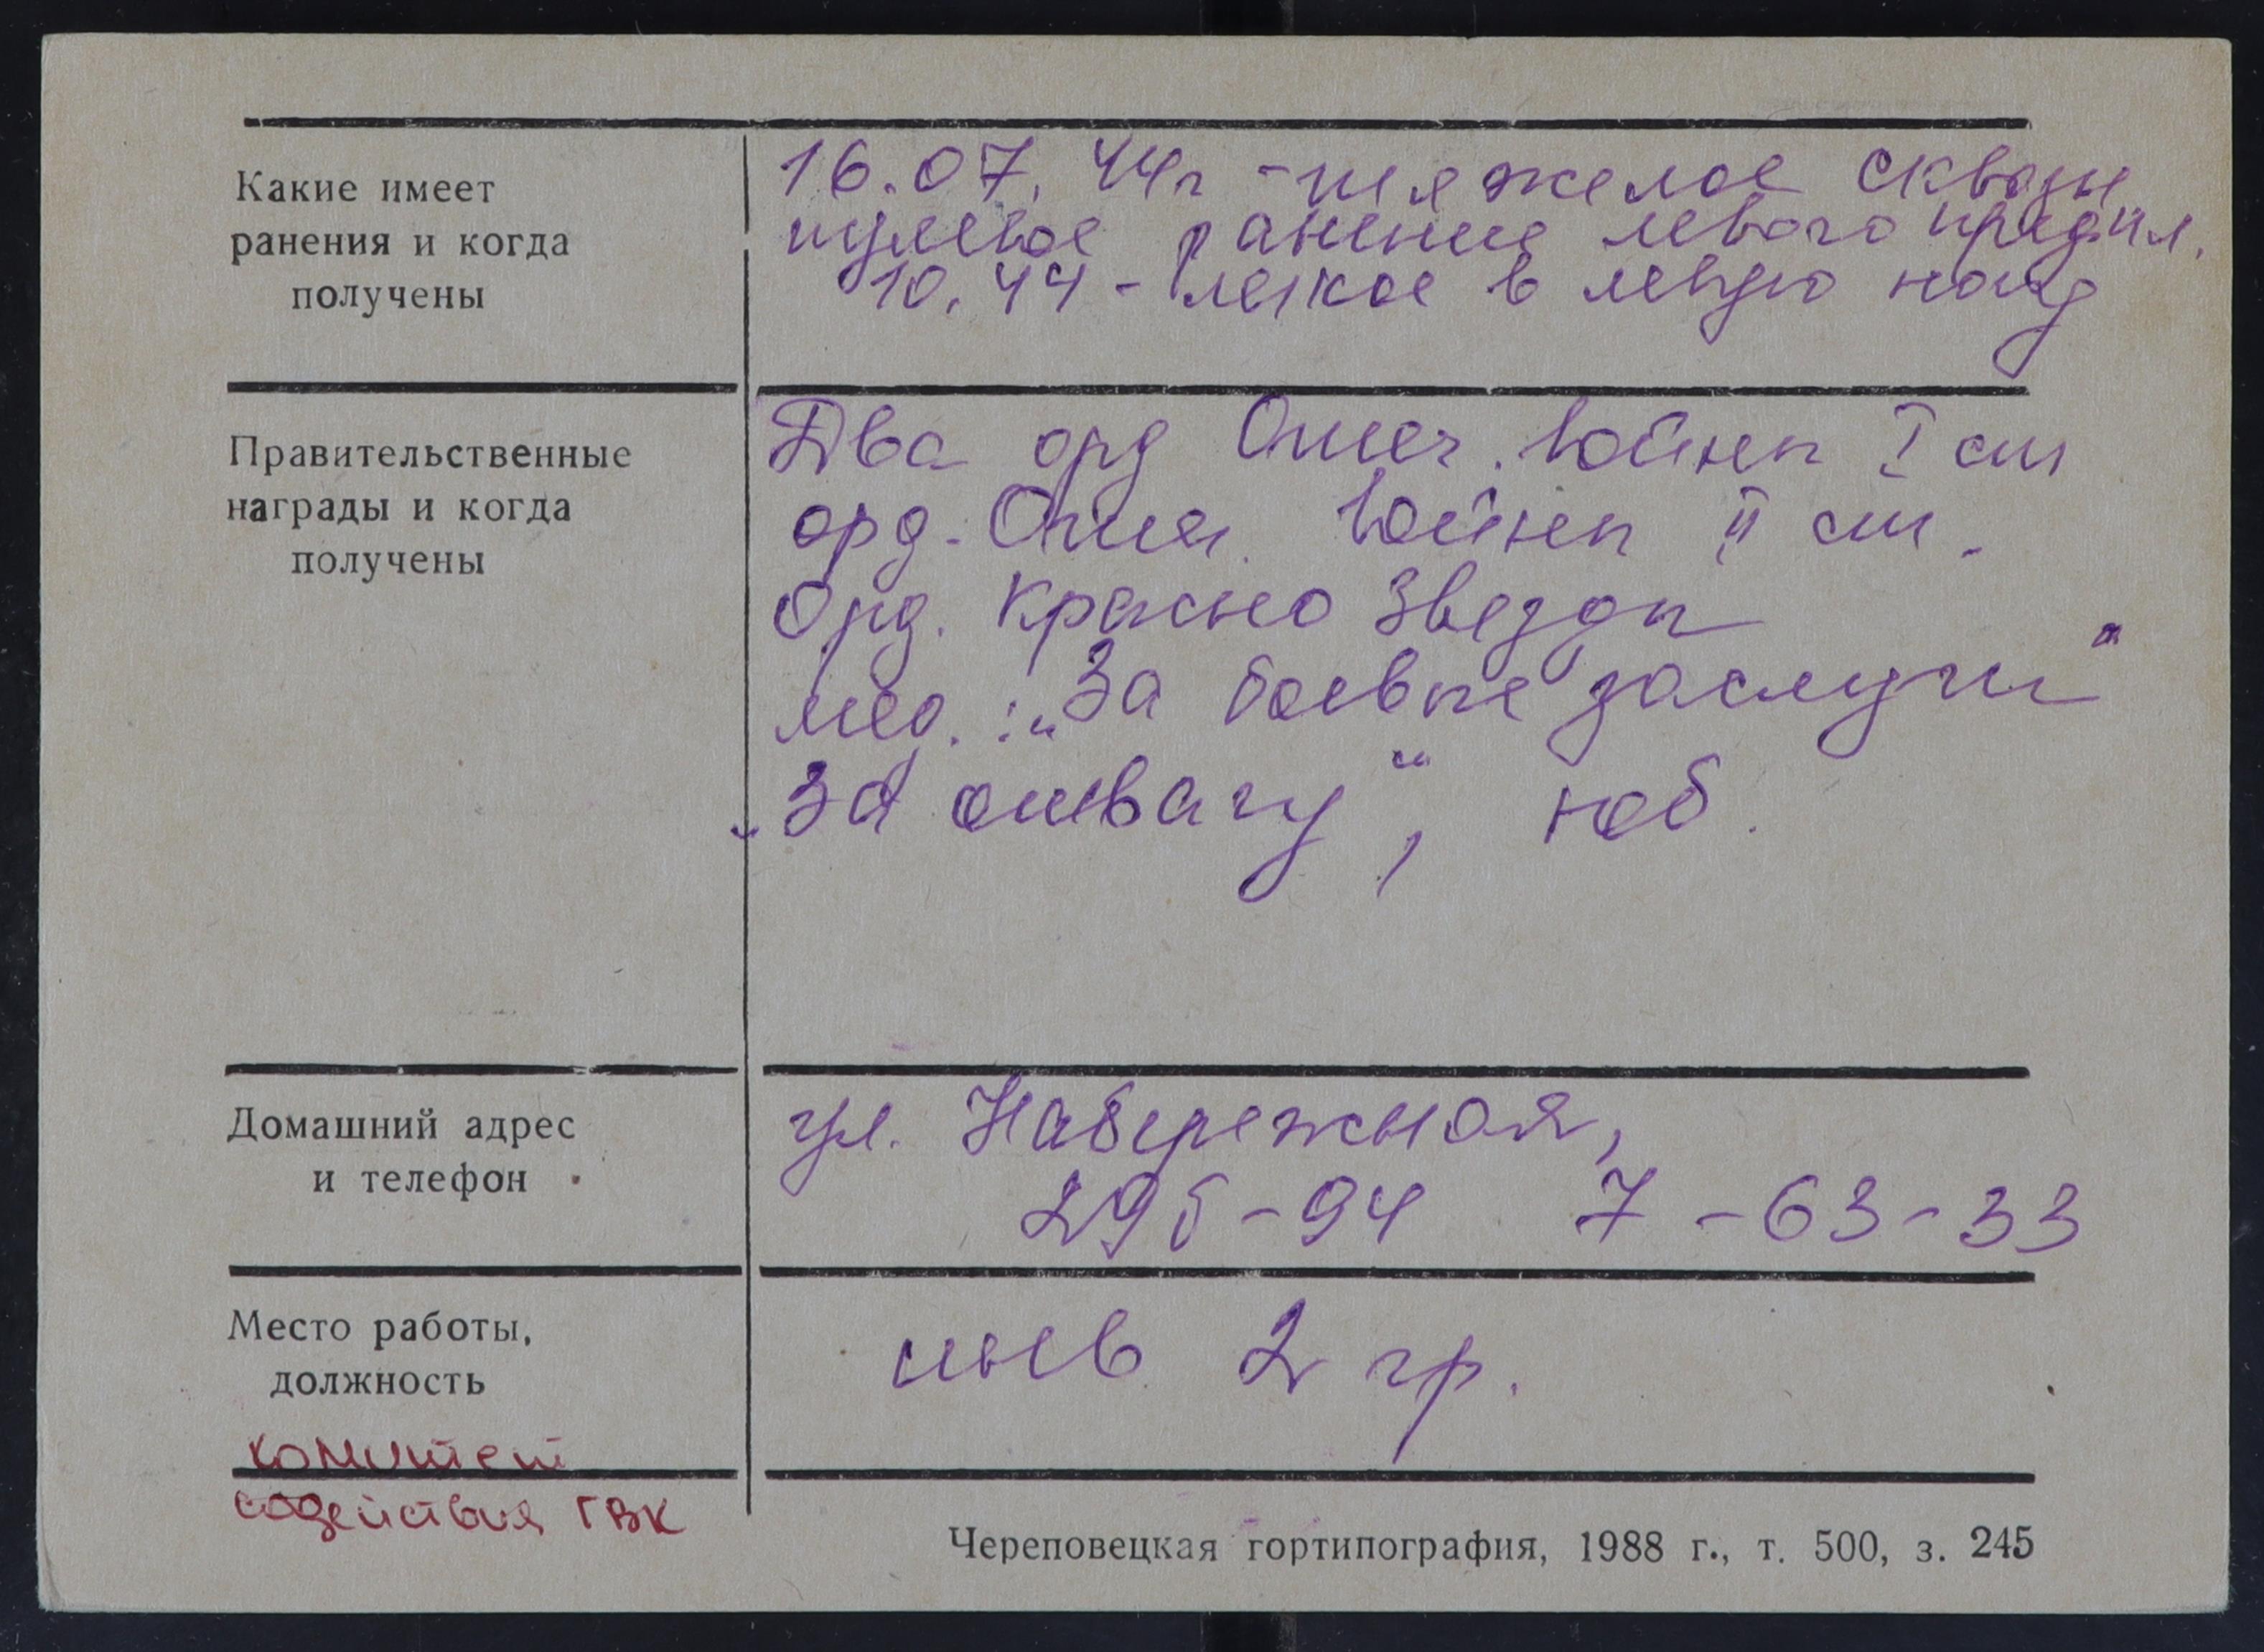 Какие имеет
ранения и когда
получены
16.07.44г - тяжелое сквозн
пулевое ранение левого предпл.
10.44 - легкое в левую ногу
Правительственные
награды и когда
получены
Два орд Отеч. Войны I ст
орд. Отеч. Войны II ст.
Орд. Красно Звезды
мед.: „За боевые заслуги"
„За отвагу", юб.
Домашний адрес
и телефон
ул. Набережная,
295-94 7-63-33
Место работы,
должность
инв 2 гр.
комитет
содействия ГВК
Череповецкая гортипография, 1988 г., т. 500, з. 245